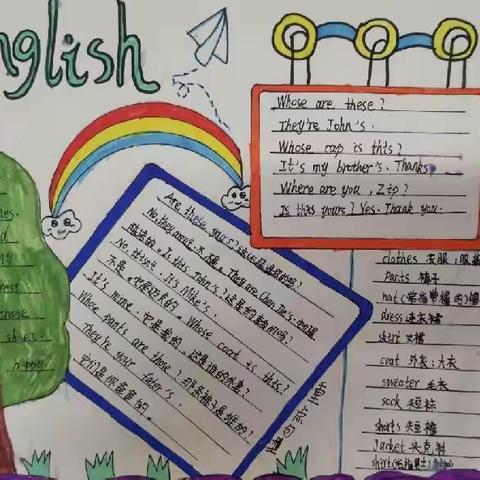 nglish
Whose are these?
They're John's.
Whose cap is this?
It's my brother's. Thanks
Where are you, Zip?
Is this yours? Yes. Thank you.
Are these yours? 这
No, they aren't. 不, They are Chen Jie's.
陈洁的. Is this John's? 这是约翰的吗?
No, it isn't. It's Mike's.
不是, Whose coat is this?
It's mine. 它是我的. 这是谁的外套?
Whose pants are those? 那条裤子是谁的?
They're your father's.
它们是你爸爸的.
clothes 衣服;服装
pants 裤子
hat
dress 连衣裙
skirt 女裙
coat 外衣;大衣
sweater 毛衣
sock 短袜
shorts 短裤
Jacket 夹克衫
shirt
these